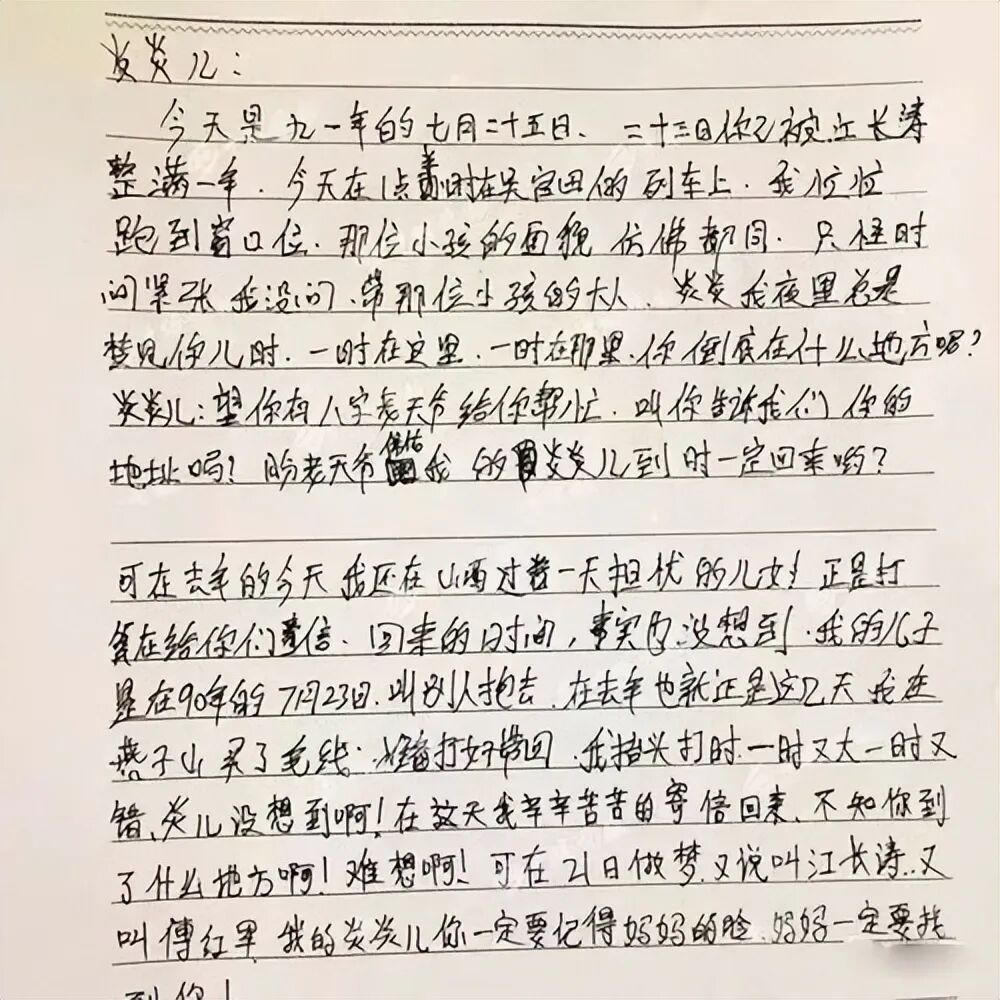 炎炎儿：
今天是九一年的七月二十五日、二十三日你已被江长涛
整满一年．今天在1点 时在吴官田的列车上．我忙忙
跑到窗口位．那位小孩的面貌仿佛都同．只怪时
间紧张我没问、带那位小孩的大人、炎炎我夜里总是
梦见你儿时．一时在这里．一时在那里．你倒底在什么地方呢？
炎炎儿：望你有八字老天爷给你帮忙．叫你告诉我们你的
地址吗？盼老天爷保佑我的炎炎儿到时一定回来哟？
可在去年的今天我还在山西过着一天担忧的儿女！正是打
算在给你们 信．回来的时间，事实内没想到．我的儿子
是在90年的7月23日．叫别人抱去．在去年也就正是这几天我在
燕子山买了毛线．准备打好带回．我抬头打时．一时又大一时又
错、炎儿没想到啊！在这天我辛辛苦苦的寄信回来、不知你到
了什么地方啊！难想啊！可在21日做梦．又说叫江长涛．．又
叫傅红军．我的炎炎儿你一定要记得妈妈的脸．妈妈一定要找
到你！